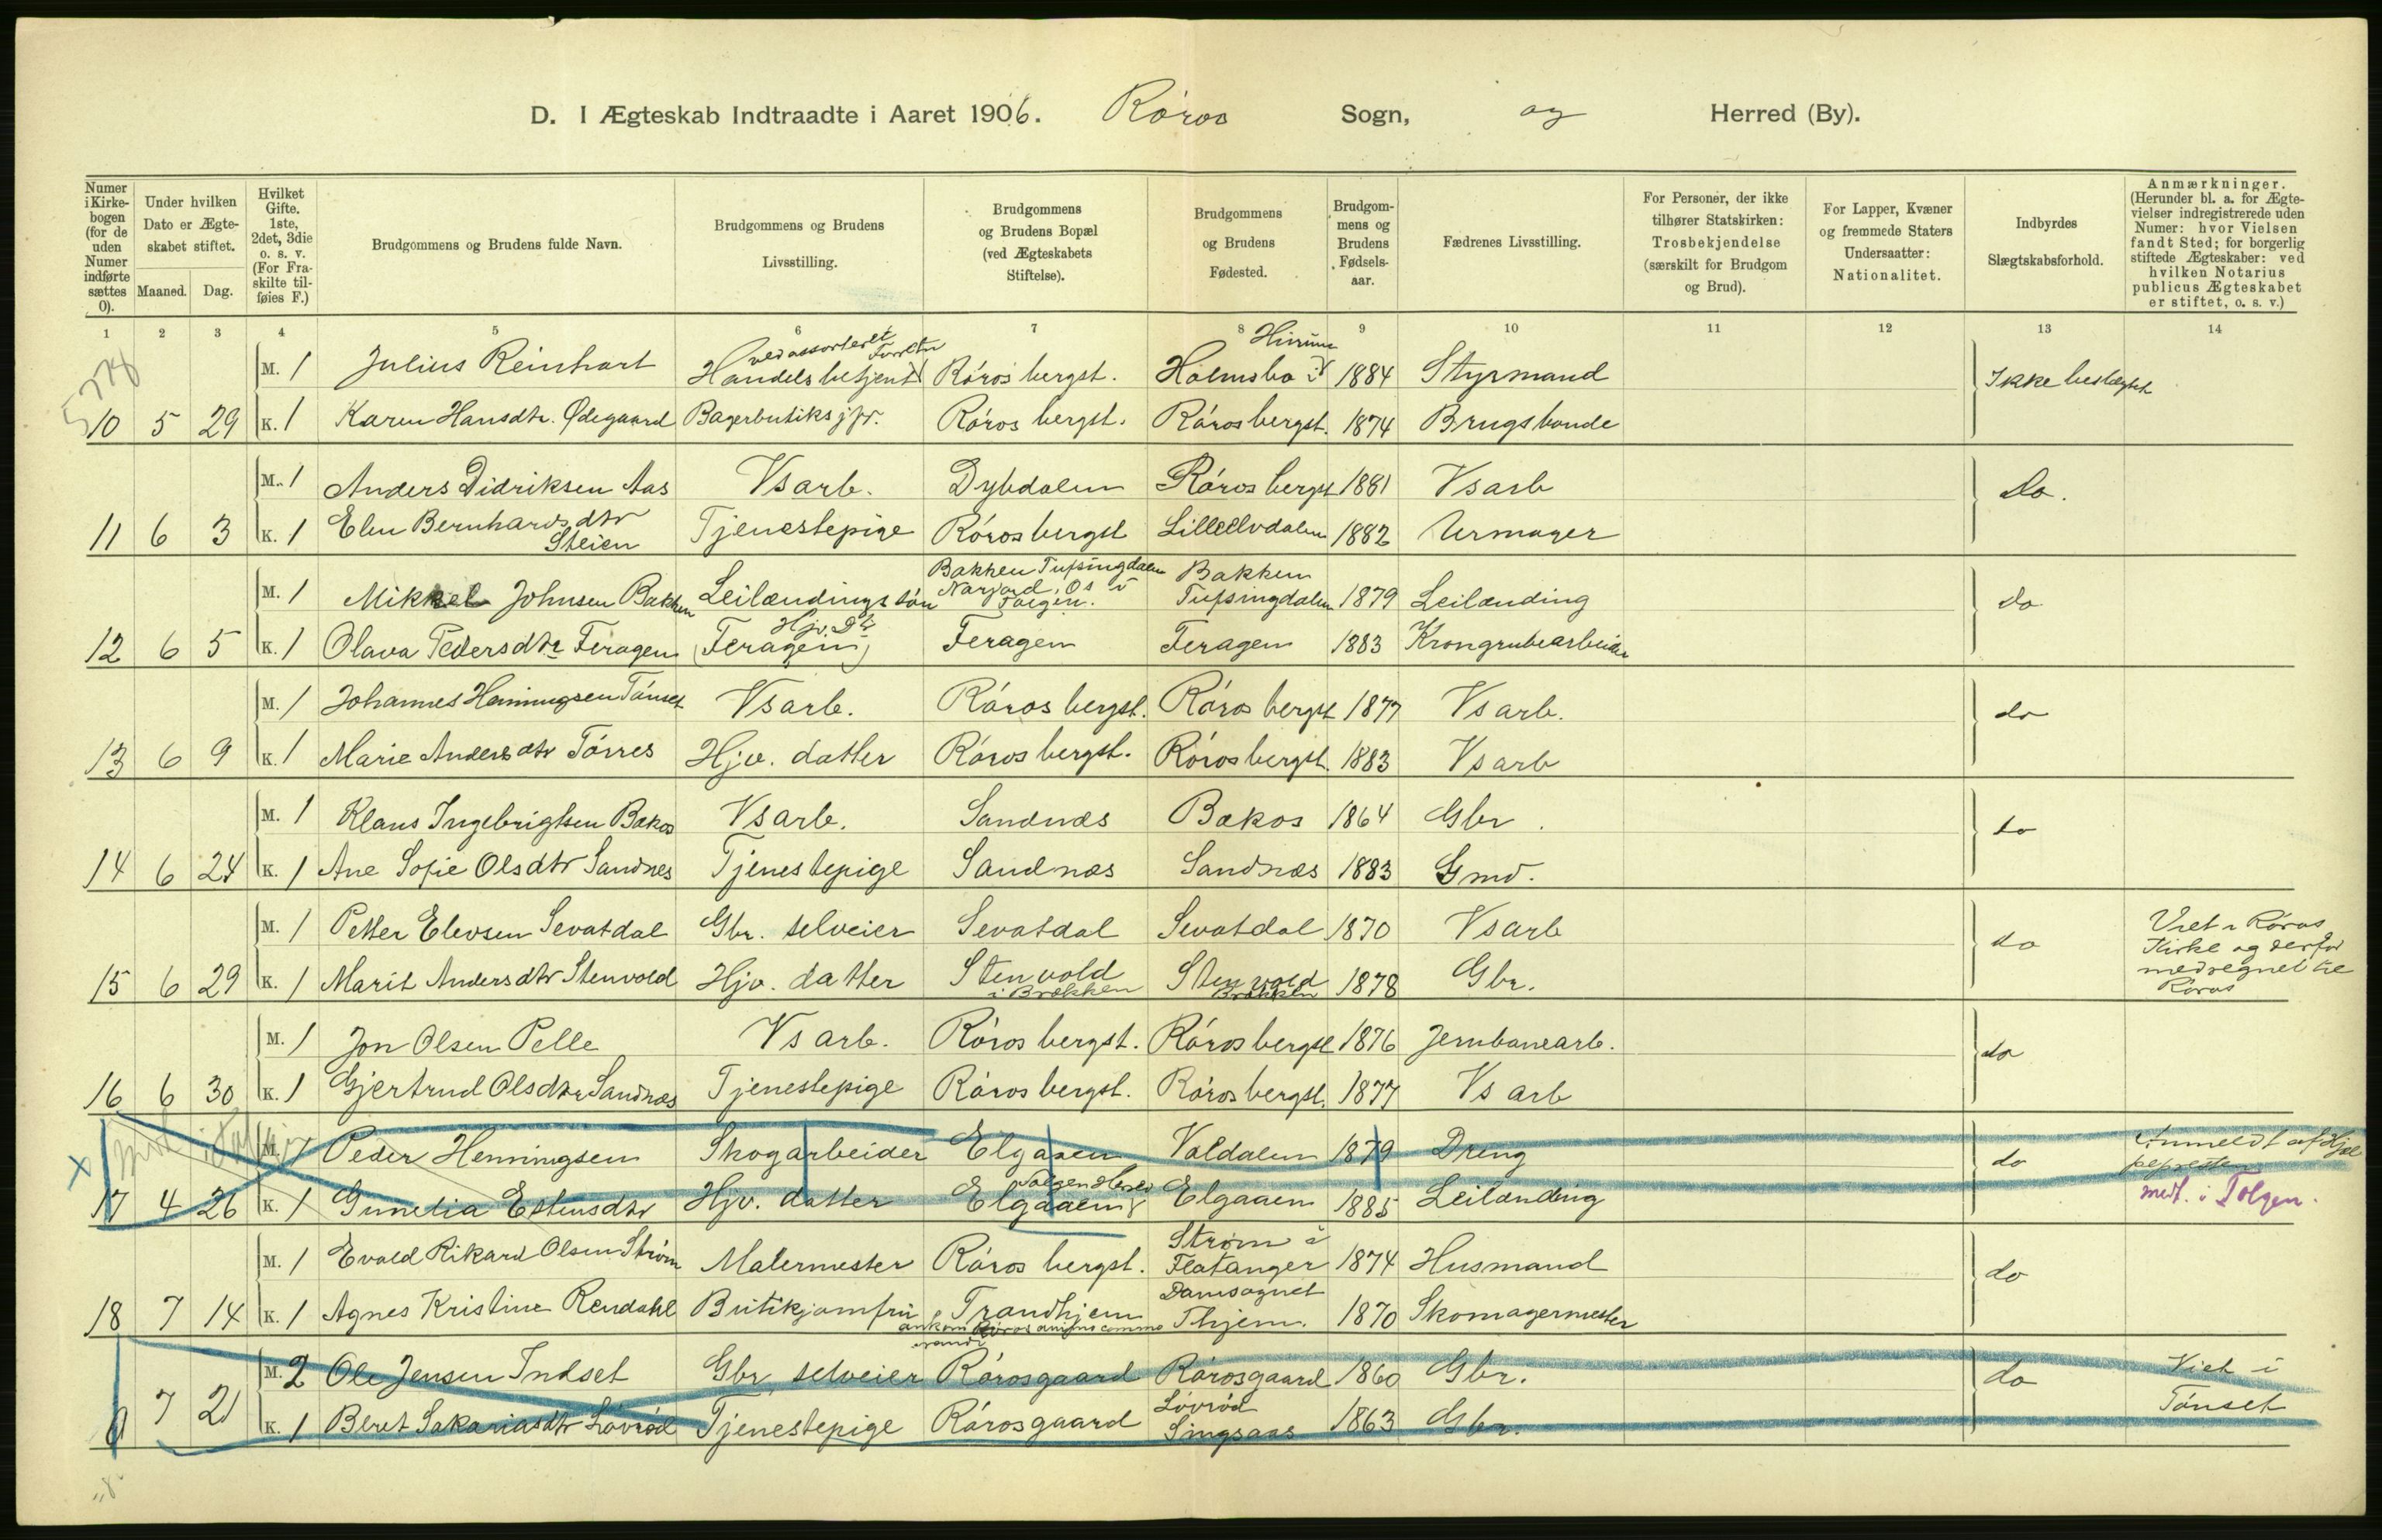 D. I Ægteskab Indtraadte i Aaret 1906. Røros Sogn, og Herred (By).
Numer i Kirkebogen (for de uden Numer indførte sættes 0).
Under hvilken Dato er Ægteskabet stiftet.
Maaned. Dag.
Hvilket Gifte. 1ste, 2det, 3die o. s. v. (For Fraskilte tilføies F.)
Brudgommens og Brudens fulde Navn.
Brudgommens og Brudens Livsstilling.
Brudgommens og Brudens Bopæl (ved Ægteskabets Stiftelse).
Brudgommens og Brudens Fødested.
Brudgommens og Brudens Fødselsaar.
Fædrenes Livsstilling.
For Personer, der ikke tilhører Statskirken: Trosbekjendelse (særskilt for Brudgom og Brud).
For Lapper, Kvæner og fremmede Staters Undersaatter: Nationalitet.
Indbyrdes Slægtskabsforhold.
Anmærkninger. (Herunder bl. a. for Ægtevielser indregistrerede uden Numer: hvor Vielsen fandt Sted; for borgerlig stiftede Ægteskaber: ved hvilken Notarius publicus Ægteskabet er stiftet, o. s. v.)
1 2 3 4 5 6 7 8 9 10 11 12 13 14
M. 1 Julius Reinhart Handelsbetjent ved assorteret Røros bergst. Holmsbo i Hurum 1884 Styrmand Ikke beslægtet
10 5 29 K. 1 Karen Hansdtr. Ødegaard Bagerbutiksjfr. Røros bergst. Røros bergst. 1874 Brugsbonde
M. 1 Anders Didriksen Aas Vsarb. Dybdalen Røros bergst 1881 Vsarb do.
11 6 3 K. 1 Elen Bernhardsdtr Steien Tjenestepige Røros bergst Lilleelvdalen 1882 Urmager
M. 1 Mikkel Johnsen Bakken Leilændingssøn Bakken Tufsingdalen Narjord, Os i Tolgen. Bakken Tufsingdalen 1879 Leilænding do
12 6 5 K. 1 Olava Pedersdtr Feragen Hjv. Dtr (Feragen) Feragen Feragen 1883 Krongrubearbeider
M. 1 Johannes Henningsen Tønset Vsarb. Røros bergst. Røros bergst 1877 Vsarb. do
13 6 9 K. 1 Marie Andersdtr Tørres Hjv. datter Røros bergst. Røros bergst. 1883 Vsarb
M. 1 Klaus Ingebrigtsen Bakos Vsarb. Sandnæs Bakos 1864 Gbr. do
14 6 24 K. 1 Ane Sofie Olsdtr Sandnes Tjenestepige Sandnæs Sandnæs 1883 Gmd.
M. 1 Petter Elevsen Sevatdal Gbr. selveier Sevatdal Sevatdal 1870 Vsarb do Viet i Røros Kirke og derfor medregnet til Røros
15 6 29 K. 1 Marit Andersdtr Stenvold Hjv. datter Stenvold i Brekken Stenvold Brekken 1878 Gbr.
M. 1 Jon Olsen Pelle Vsarb. Røros bergst. Røros bergst 1876 Jernbanearb. do
16 6 30 K. 1 Gjertrud Olsdtr Sandnæs Tjenestepige Røros bergst. Røros bergst. 1877 Vsarb
M. 1 Peder Henningsen Skogarbeider Elgaaen Valdalen 1879 Dreng do Anmeldt af Hjælpepresten
17 4 26 K. 1 Gunelia Estensdtr Hjv. datter Elgaaen Tolgen Herred Elgaaen 1885 Leilænding medt. i Tolgen.
M. 1 Evald Rikard Olsen Strøm Malermester Røros bergst. Strøm i Flatanger 1874 Husmand do
18 7 14 K. 1 Agnes Kristine Rendahl Butikjomfru Trondhjem Domsognet Thjem. 1870 Skomagermester
M. 2 Ole Jensen Indset Gbr. selveier Rørosgaard Rørosgaard 1860 Gbr. do Viet i Tønset
0 7 21 K. 1 Beret Sakariasdtr Løvrød Tjenestepige Rørosgaard Løvrød Singsaas 1863 Gbr.